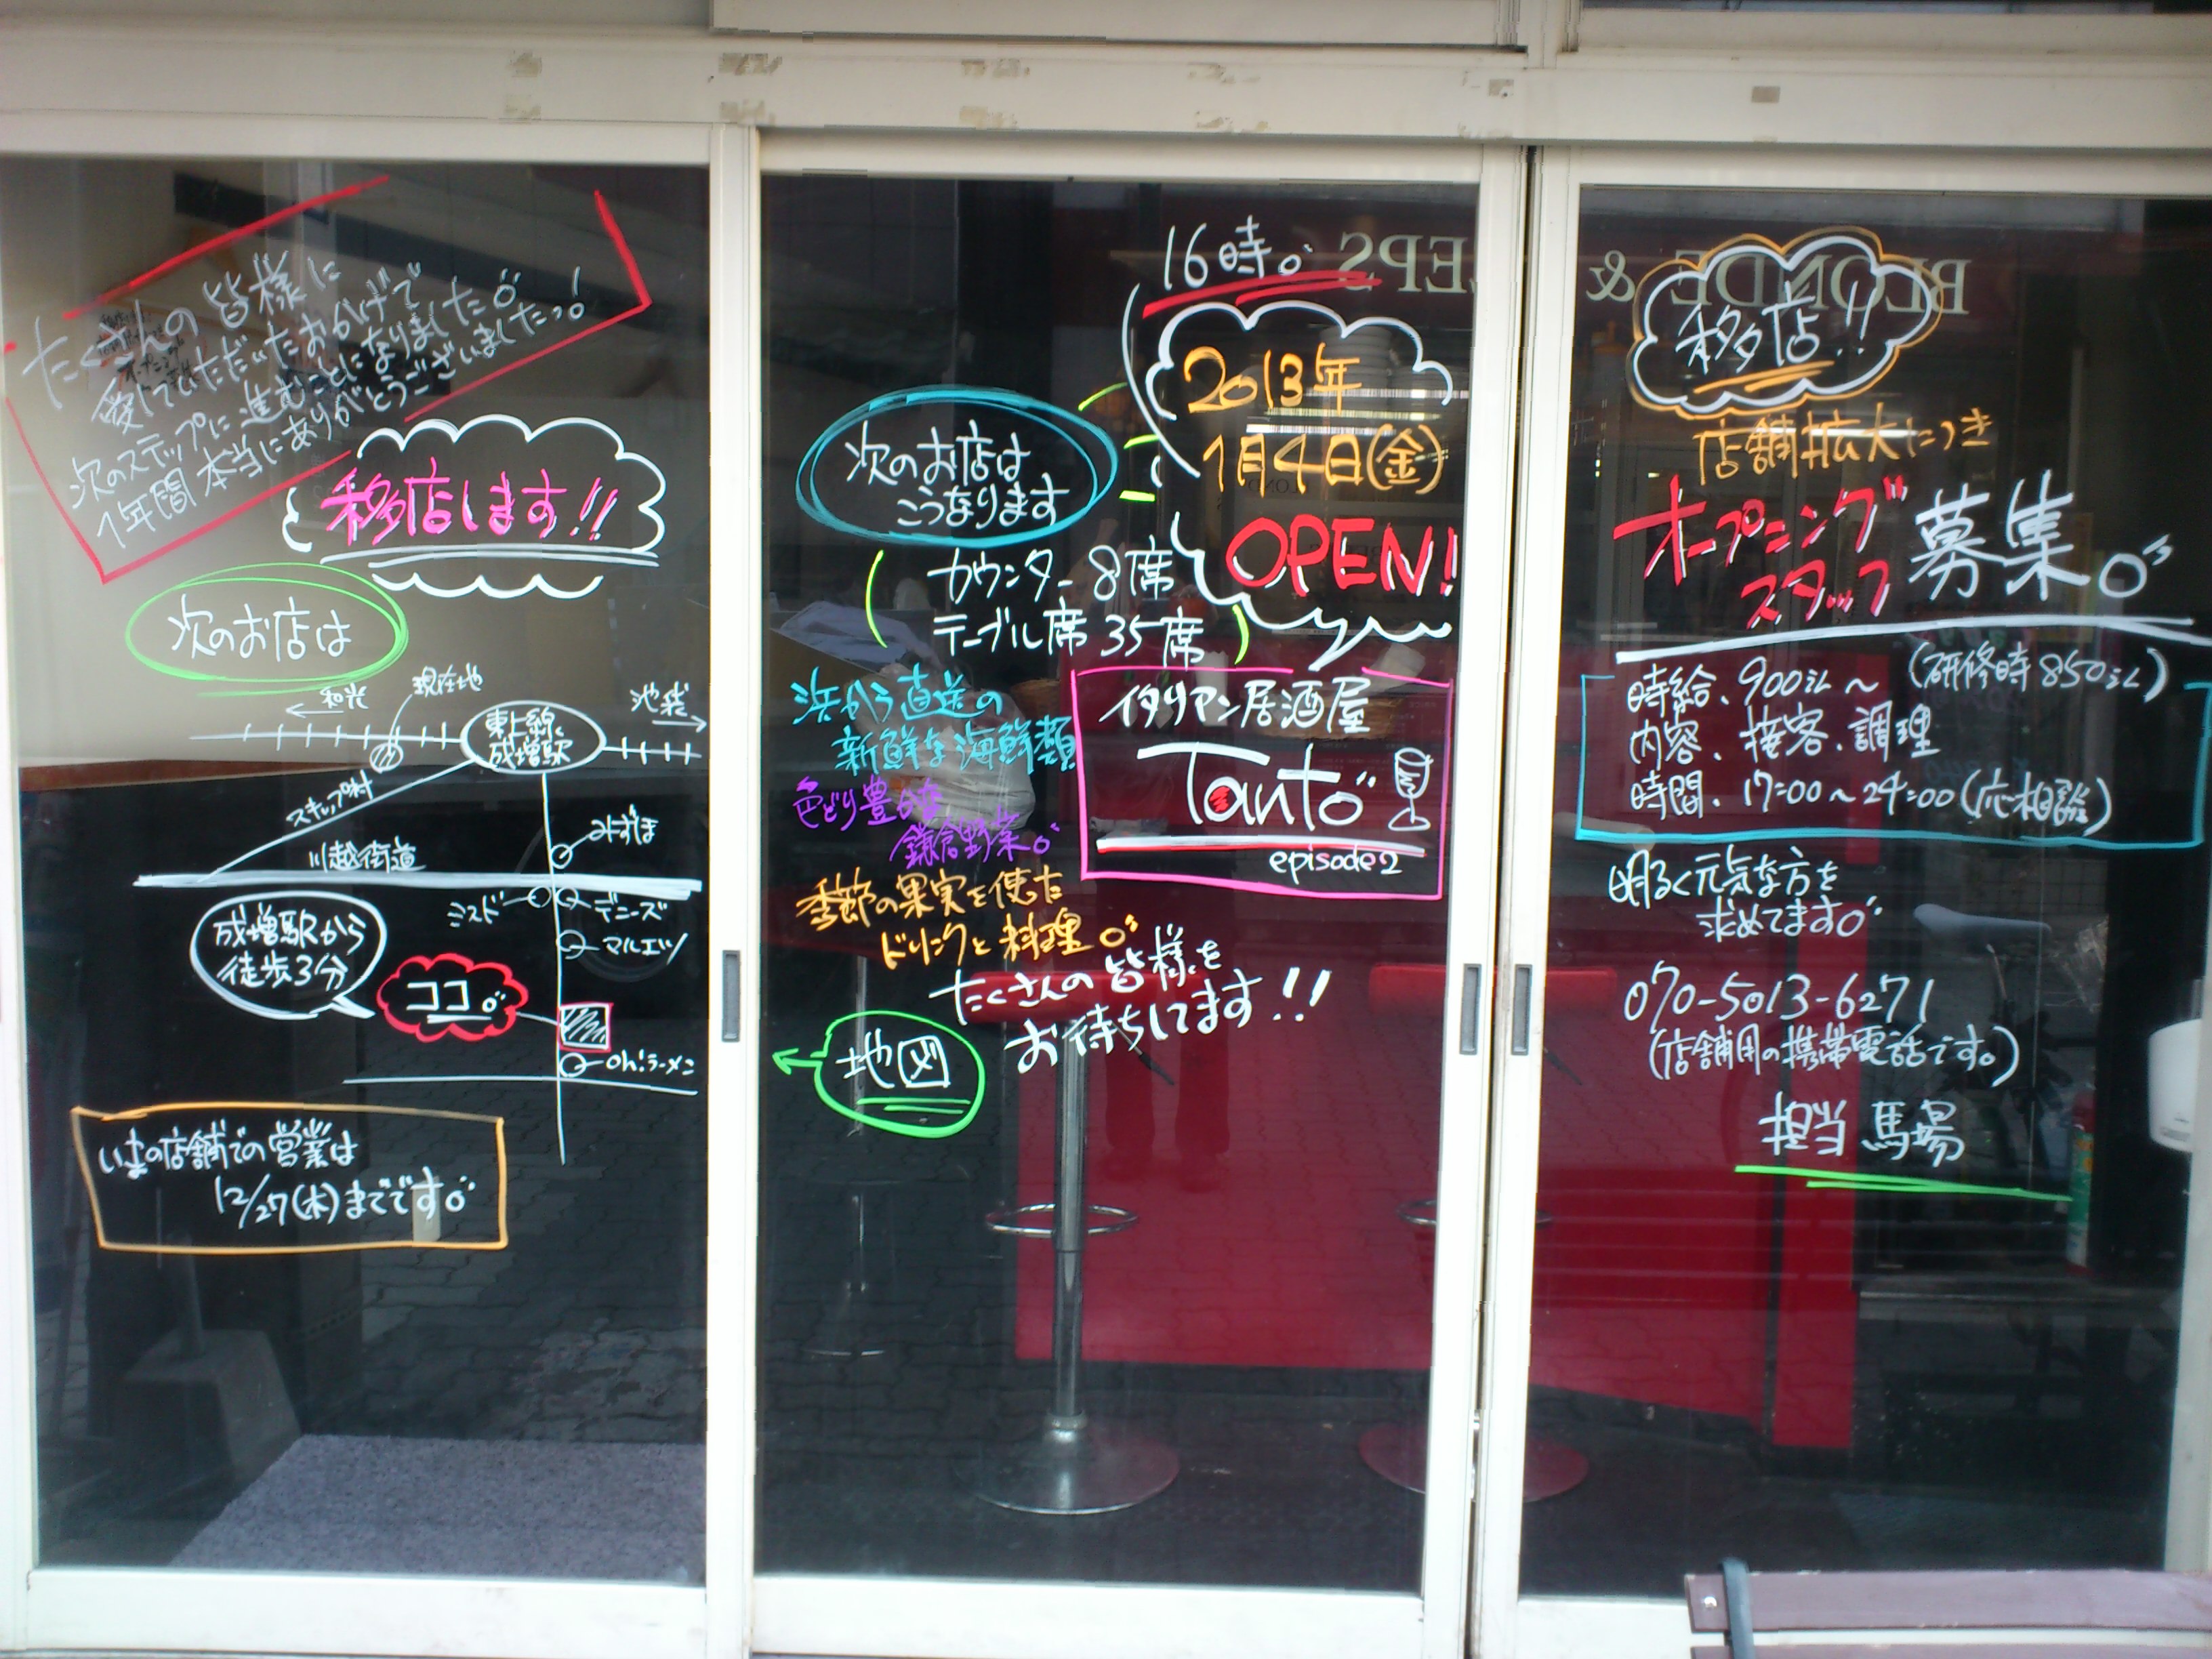 たくさんの皆様に
愛していただいたおかげで
次のステップに進むことになりました。
1年間本当にありがとうございましたっ!
移店します!!
次のお店は
和光
現在地
東上線
成増駅
池袋
スキップ村
川越街道
みずほ
ミスド
デニーズ
マルエツ
成増駅から
徒歩3分
ココ。
Oh!ラーメン
いまの店舗での営業は
12/27(木)までです。
16時。
2013年
1月4日(金)
OPEN!
次のお店は
こうなります
カウンター8席
テーブル席 35席
浜から直送の
新鮮な海鮮類
色どり豊かな
鎌倉野菜。
季節の果実を使った
ドリンクと料理。
たくさんの皆様を
お待ちしてます!!
地図
イタリアン居酒屋
Tanto。
episode2
BLONDE & 
EPS
移店!!
店舗拡大につき
オープニング
スタッフ
募集。
時給、900円~(研修時850円)
内容、接客、調理
時間、17:00~24:00(応相談)
明るく元気な方を
求めてます。
070-5013-6271
(店舗用の携帯電話です。)
担当 馬場